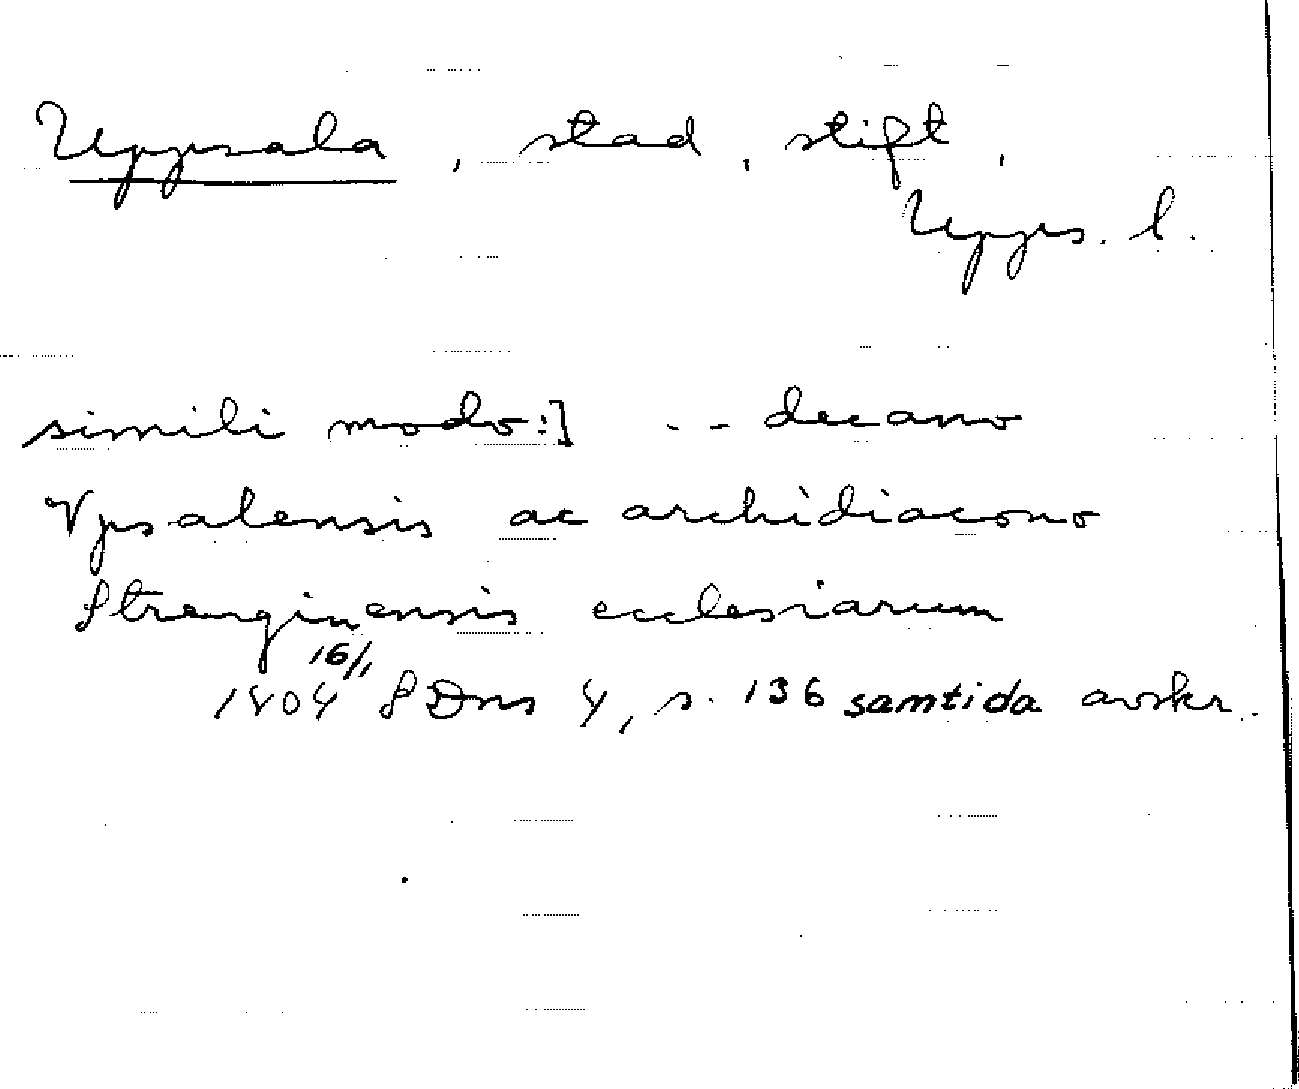 Uppsala, stad, stift,
Upps. l.
simili modo:] -- decano
Vpsalensis ac archidiacono
Strenginensis ecclesiarum
16/1
1404 SDns 4, s. 136 samtida avskr.